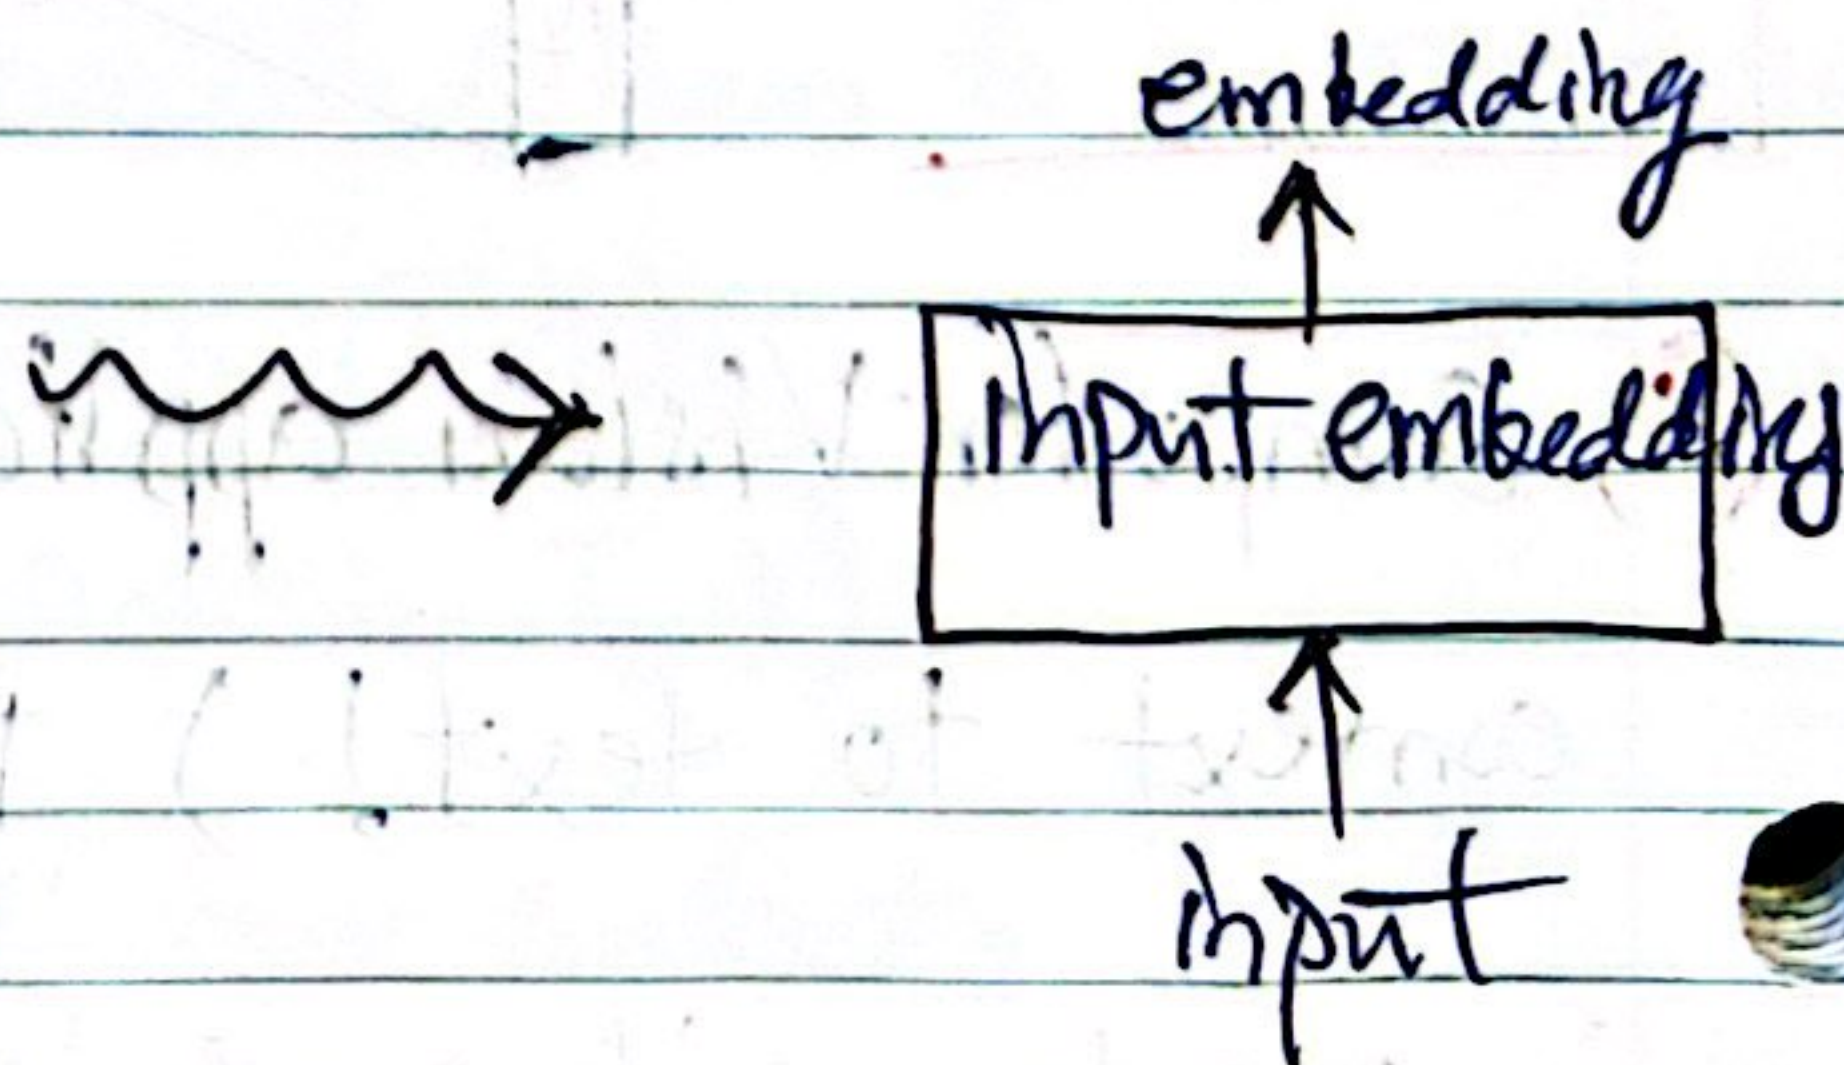 embedding
input embedding
input